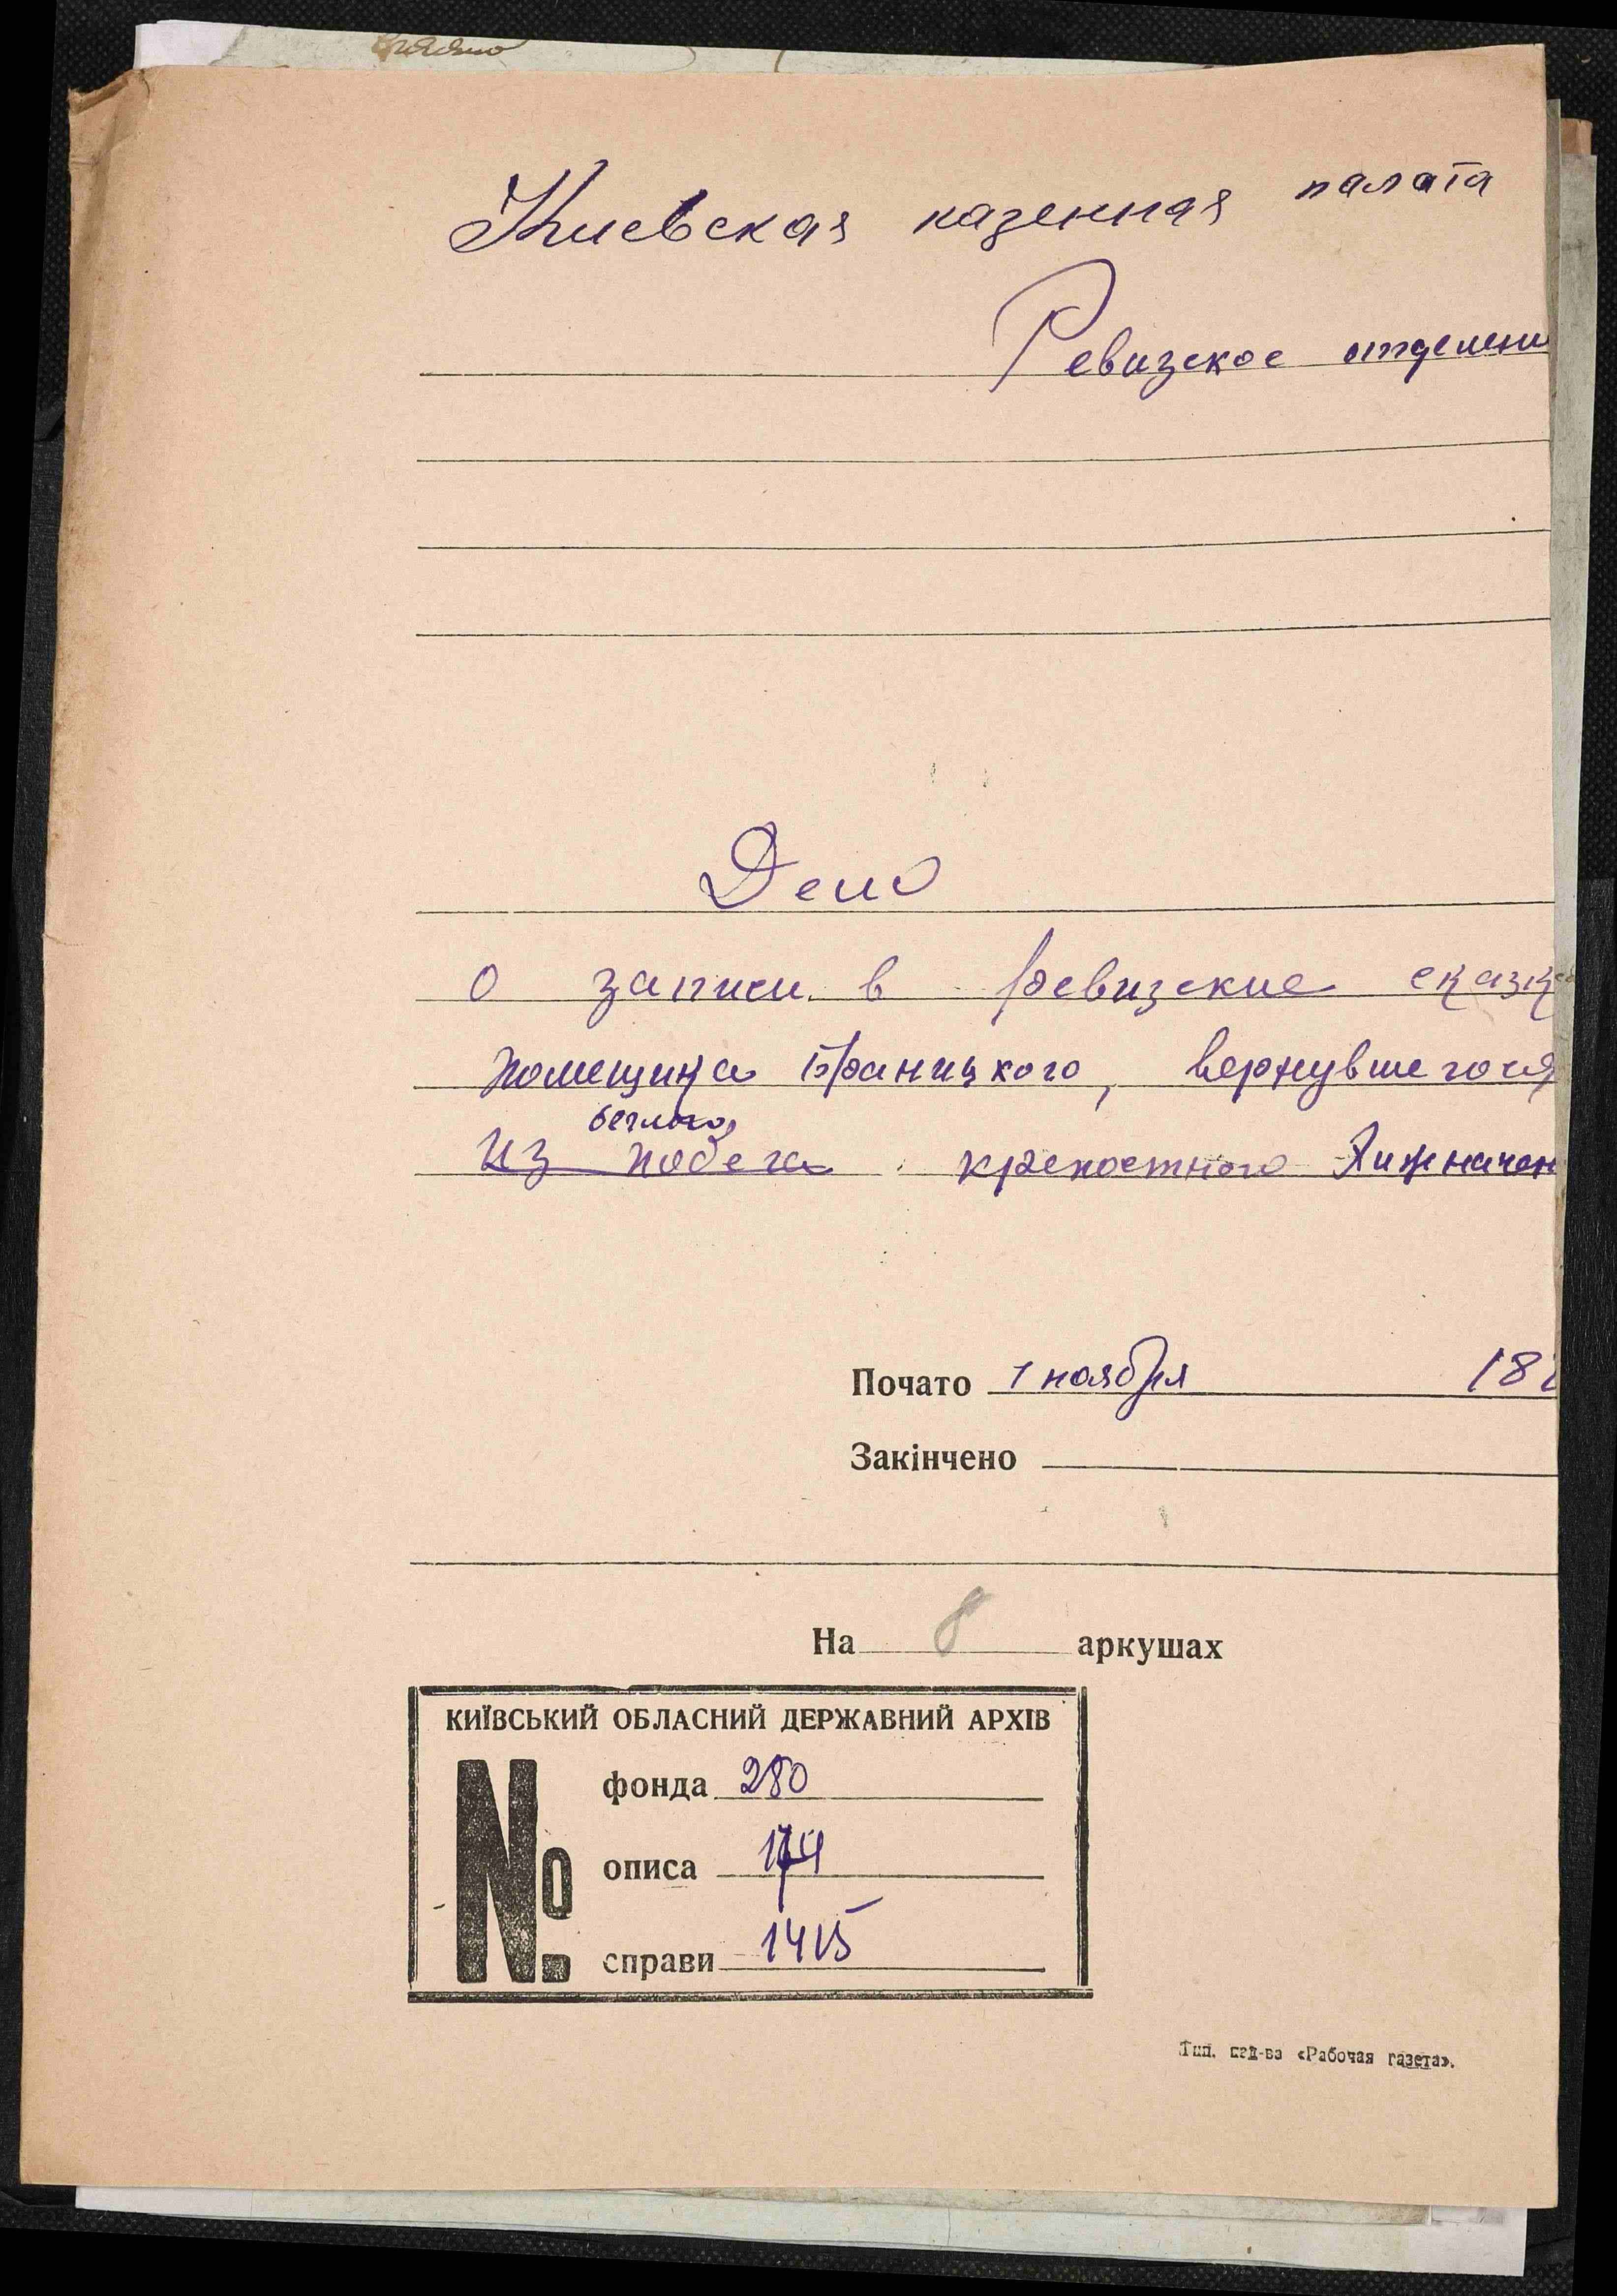 Киевская казенная палата
Ревизское отделени
Дело
о записи в ревизские сказк
помещика Браницкого, вернувшегося
беглого
из побега крепостного
Почато 1 ноября 18
Закінчено
На 8 аркушах
КИЇВСЬКИЙ ОБЛАСНИЙ ДЕРЖАВНИЙ АРХІВ
№
фонда 280
описа 174
справи 1415
Тип. изд-ва «Рабочая газета».